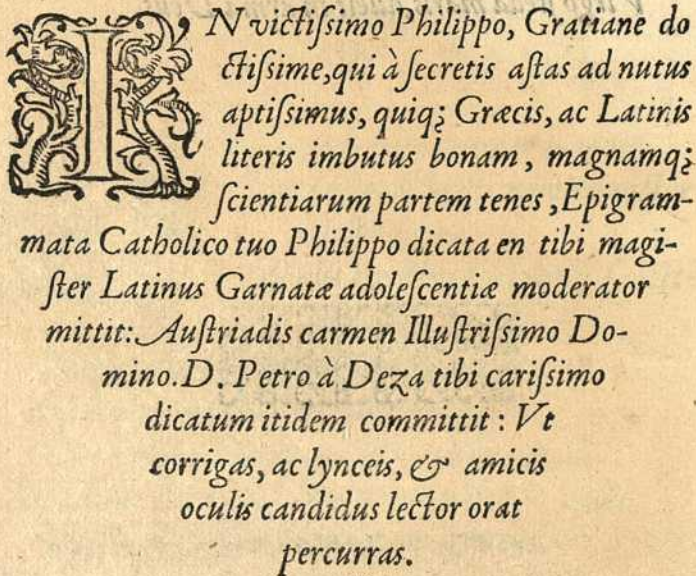 IN victiſsimo Philippo, Gratiane do
ctiſsime, qui à ſecretis aſtas ad nutus
aptiſsimus, quiq; Græcis, ac Latinis
literis imbutus bonam, magnamq;
ſcientiarum partem tenes, Epigram-
mata Catholico tuo Philippo dicata en tibi magi-
ſter Latinus Garnatæ adoleſcentiæ moderator
mittit: Auſtriadis carmen Illuſtriſsimo Do-
mino. D. Petro à Deza tibi cariſsimo
dicatum itidem committit: Vt
corrigas, ac lynceis, & amicis
oculis candidus lector orat
percurras.